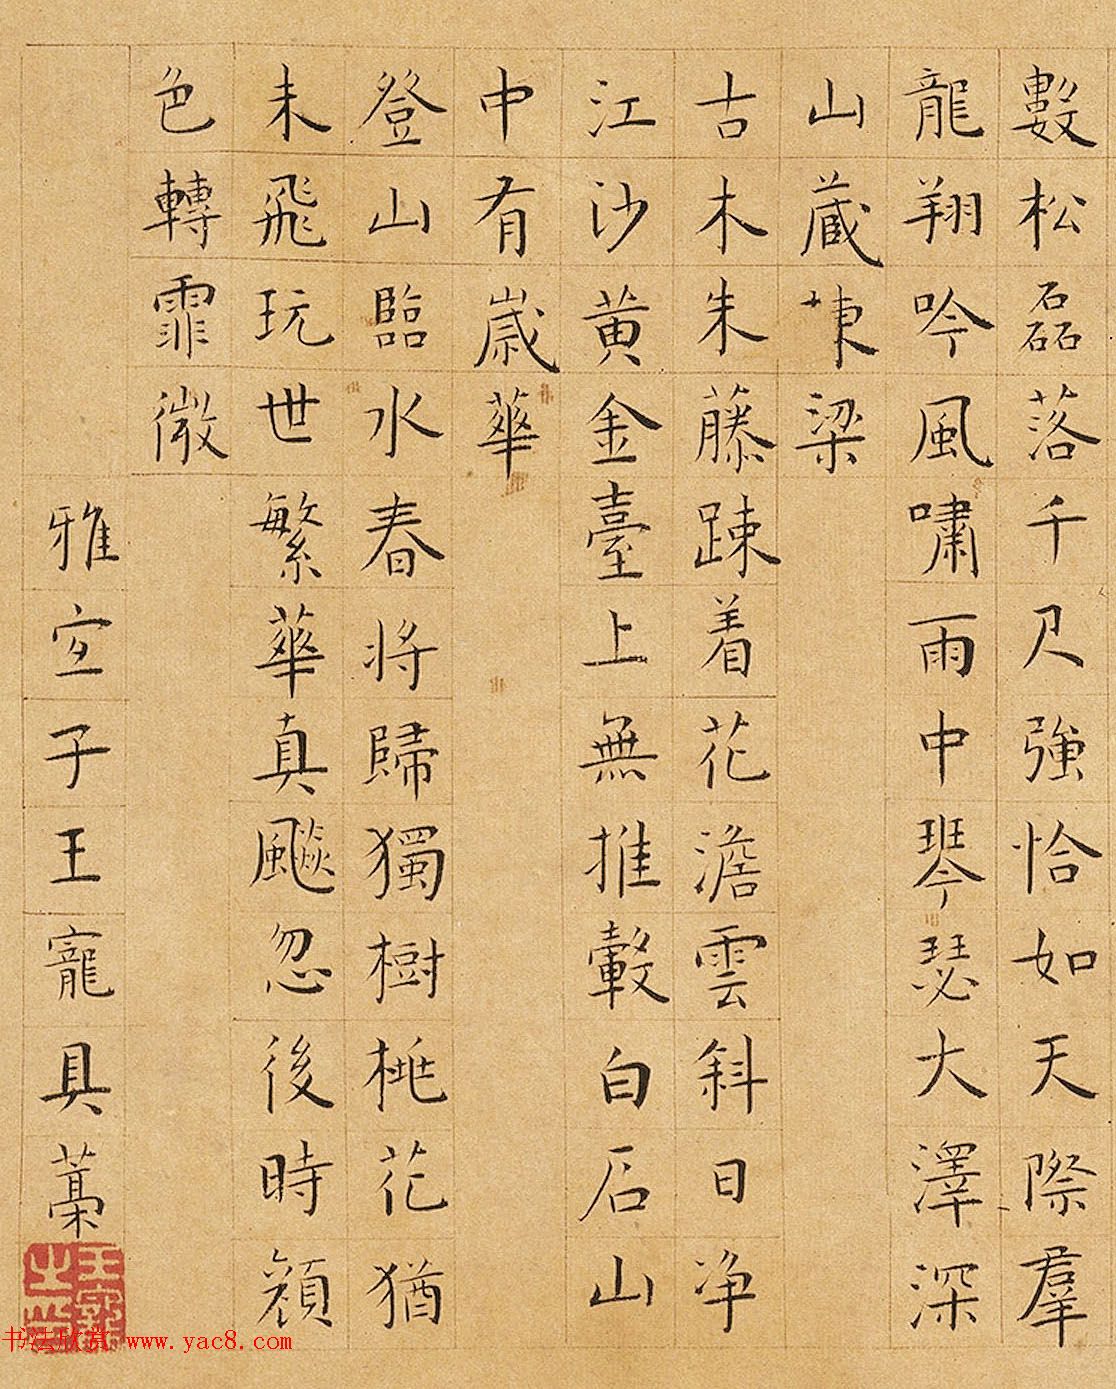 數松磊落千尺強恰如天際羣
龍翔吟風嘯雨中琴瑟大澤深
山蔵棟梁
古木朱藤踈着花澹雲斜日净
江沙黃金臺上無推轂白石山
中有歲華
登山臨水春將歸獨樹桃花猶
未飛玩世繁華真飈忽後時顔
色轉霏微
雅宜子王寵具藁
王寵
书法欣赏 www.yac8.com